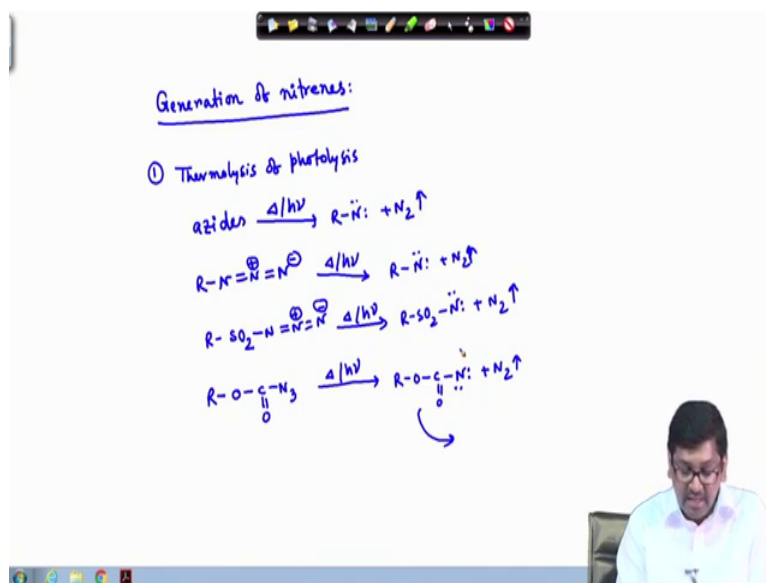 Generation of nitrenes:
① Thermolysis of photolysis
azides Δ/hν → R-N̈: + N₂↑
R-N=N⊕=N⊖ Δ/hν → R-N̈: + N₂↑
R-SO₂-N=N⊕=N⊖ Δ/hν → R-SO₂-N̈: + N₂↑
R-O-C-N₃ Δ/hν → R-O-C-N̤: + N₂↑
|| ||
O O